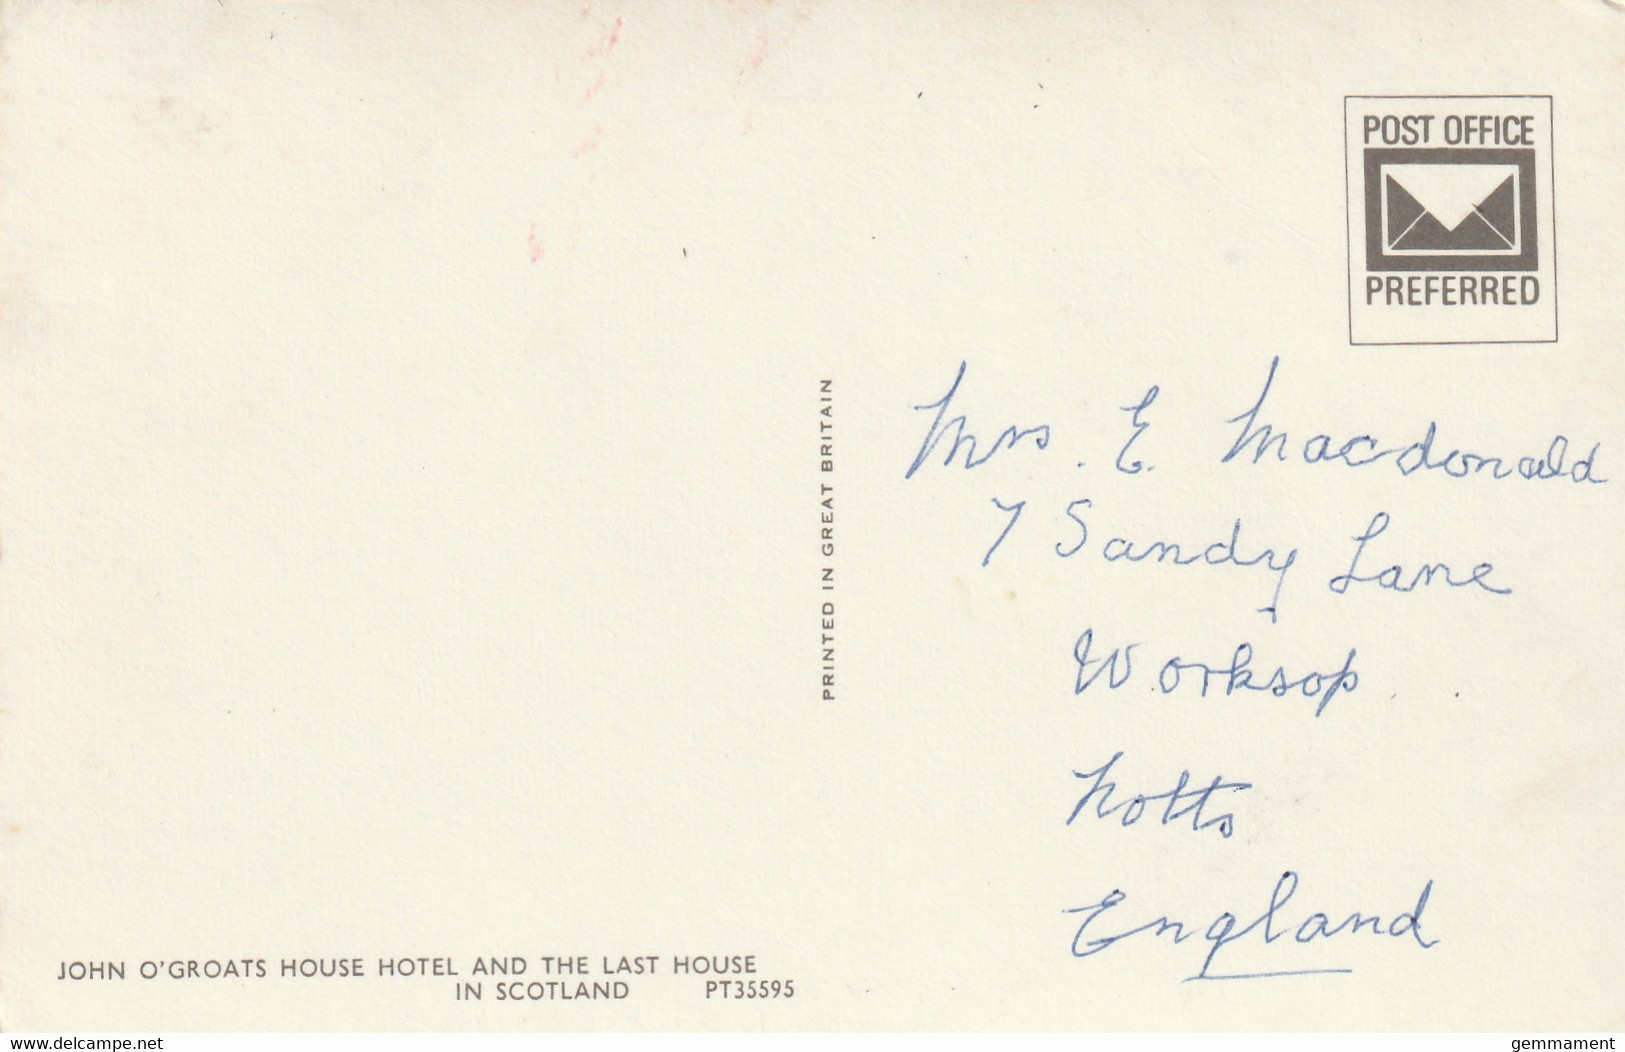 POST OFFICE
PREFERRED
PRINTED IN GREAT BRITAIN
Mrs. E. Macdonald
7 Sandy Lane
Worksop
Notts
England
JOHN O'GROATS HOUSE HOTEL AND THE LAST HOUSE
IN SCOTLAND PT35595
www.delcampe.net
gemmament